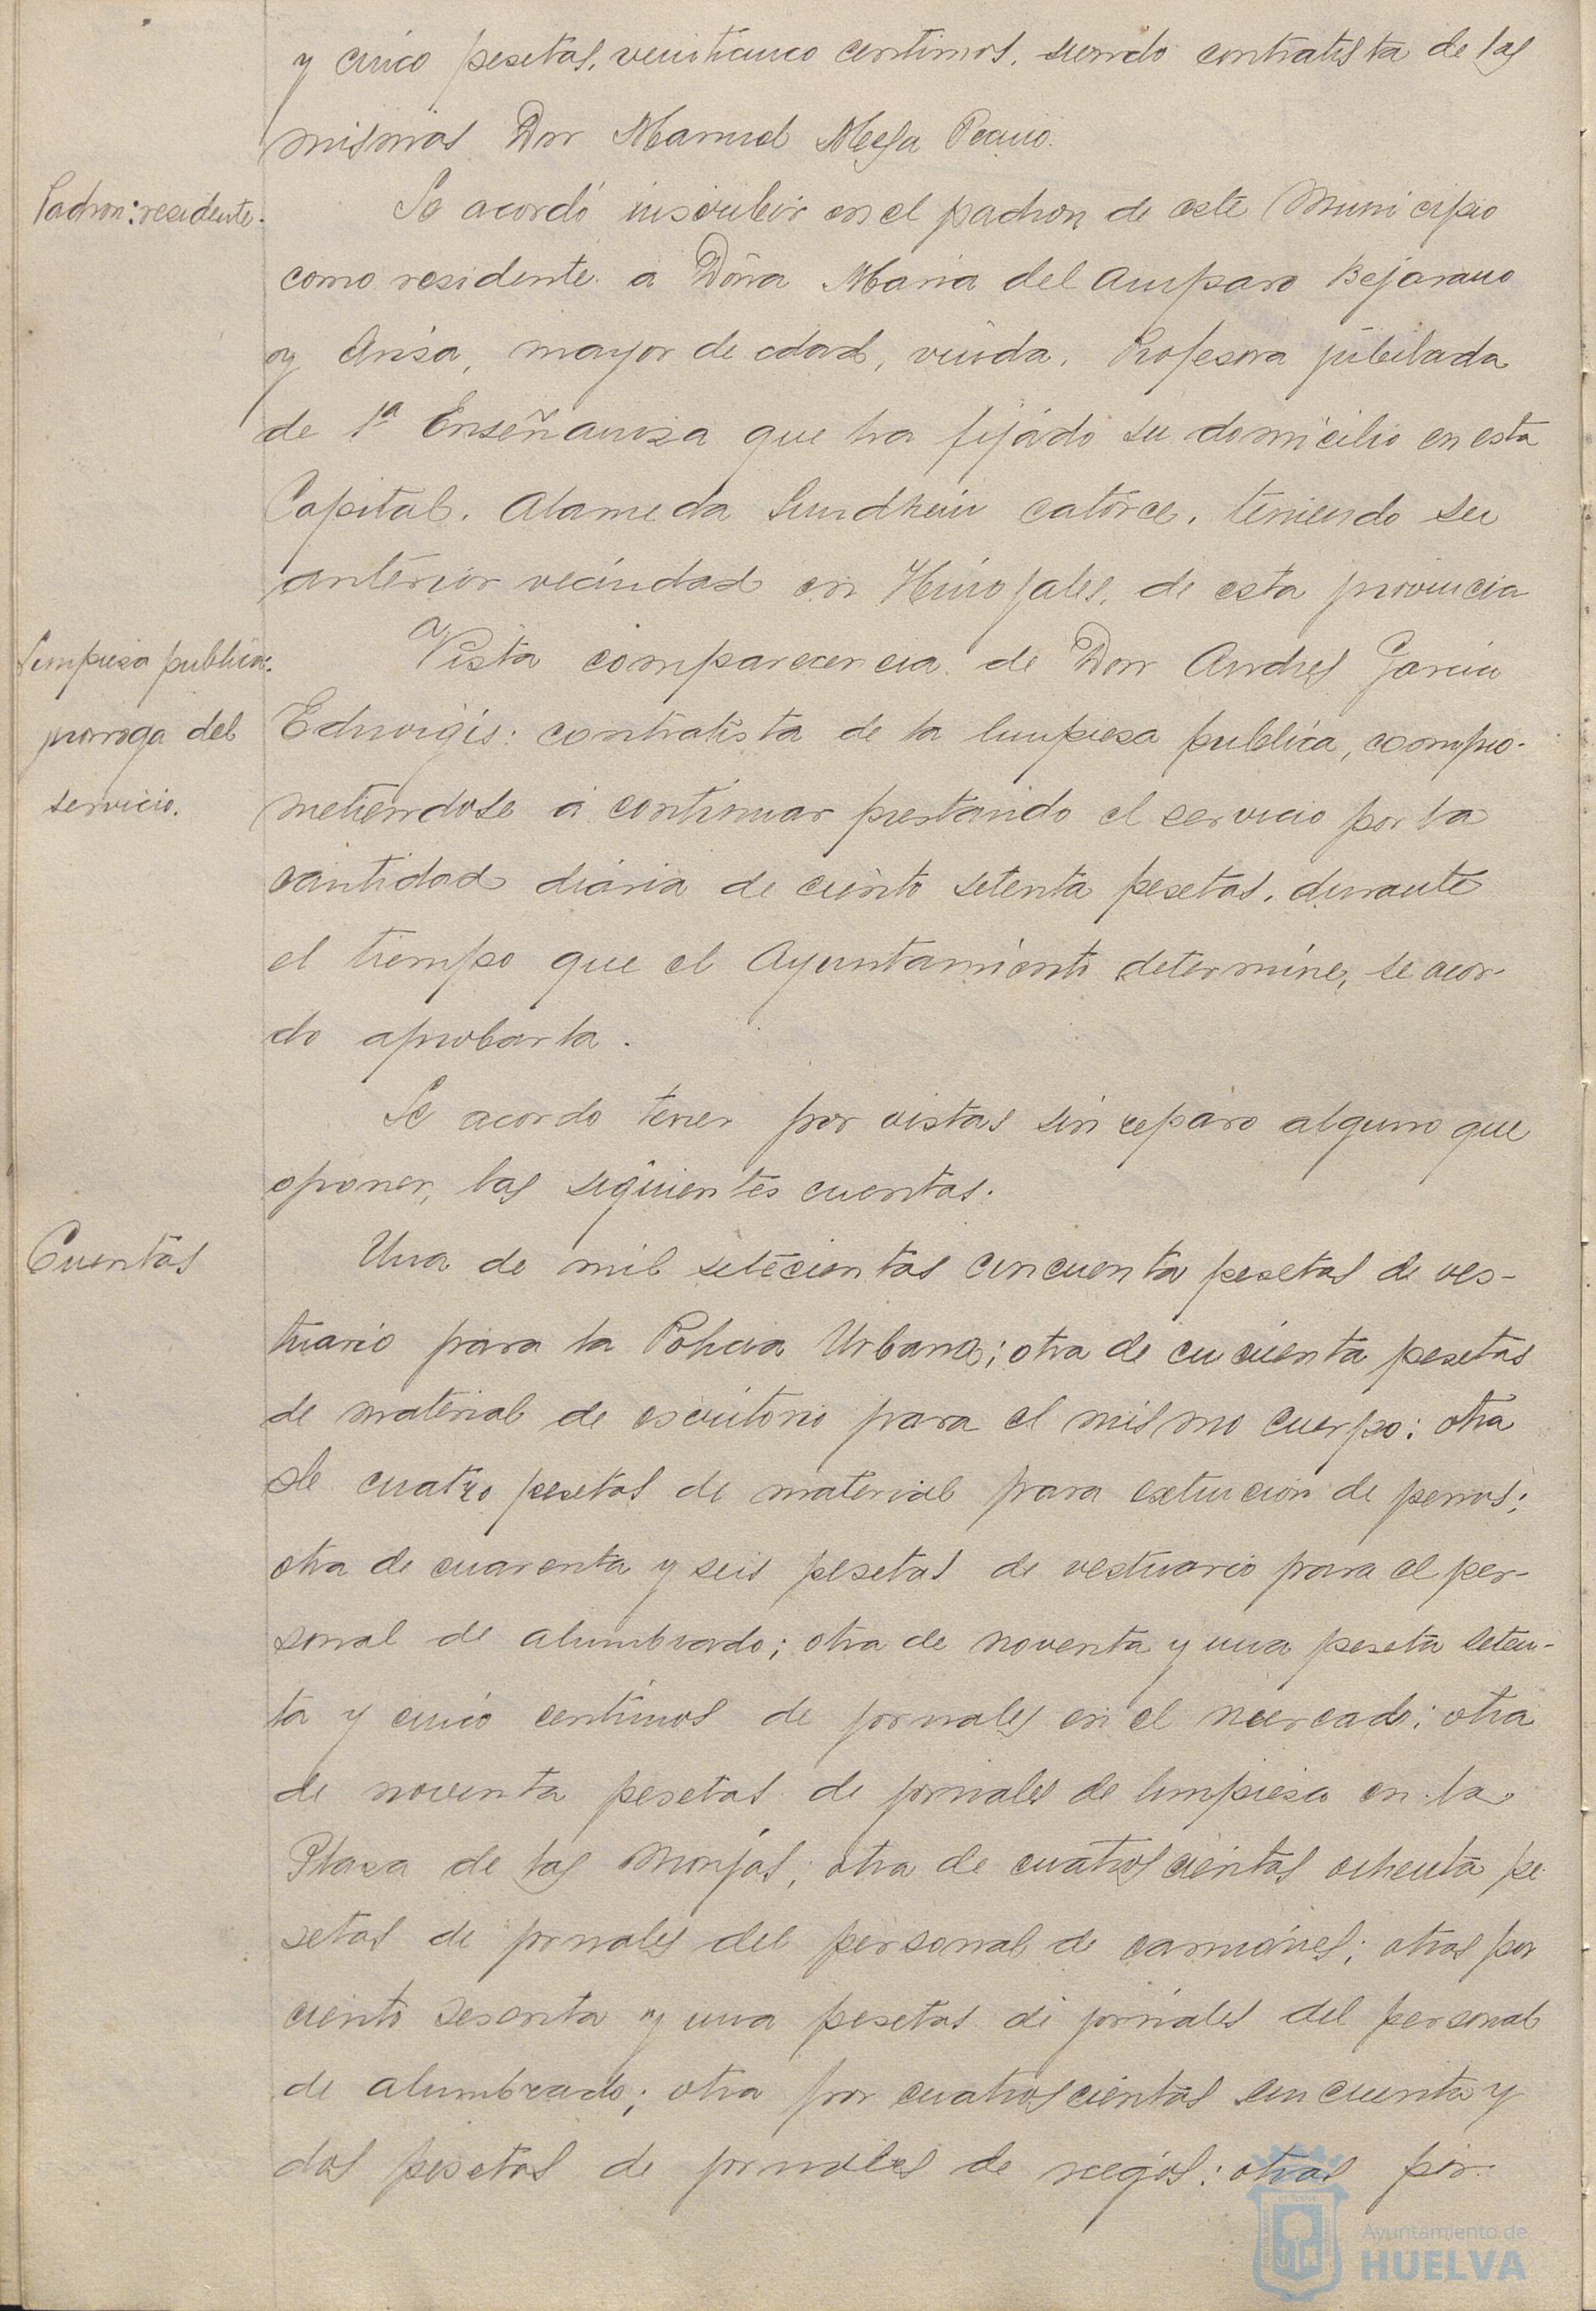 y cinco pesetas, veinticinco centimos, siendo contratista de las
mismas Don Manuel Mesa
Padron: residente.
Se acordó inscribir en el padron de este Municipio
como residente a Doña Maria del Amparo Bejarano
y Arisa, mayor de edad, viuda, Profesora jubilada
de 1ª Enseñanza que ha fijado su domicilio en esta
Capital, Alameda Sundhein catorce, teniendo su
anterior vecindad en Hinojales, de esta provincia
Limpieza publica:
prorroga del
servicio.
Vista comparecencia de Don Andres Garcia
Eduvigis: contratista de la limpieza publica, compro-
metiendose a continuar prestando el servicio por la
cantidad diaria de ciento setenta pesetas, durante
el tiempo que el Ayuntamiento determine, se acor-
do aprobarla.
Se acordo tener por vistas sin reparo alguno que
oponer, las siguientes cuentas.
Cuentas
Una de mil setecientas cincuenta pesetas de ves-
tuario para la Policia Urbana; otra de cincuenta pesetas
de material de escritorio para el mismo cuerpo: otra
de cuatro pesetas de material para extincion de perros;
otra de cuarenta y seis pesetas de vestuario para el per-
sonal de alumbrado; otra de noventa y una peseta seten-
ta y cinco centimos de jornales en el mercado; otra
de noventa pesetas de jornales de limpieza en la
Plaza de las Monjas; otra de cuatroscientas ochenta pe-
setas de jornales del personal de camiones; otras por
ciento sesenta y una pesetas de jornales del personal
de alumbrado; otra por cuatroscientas cincuenta y
dos pesetas de jornales de riegos: otras por
Ayuntamiento de
HUELVA